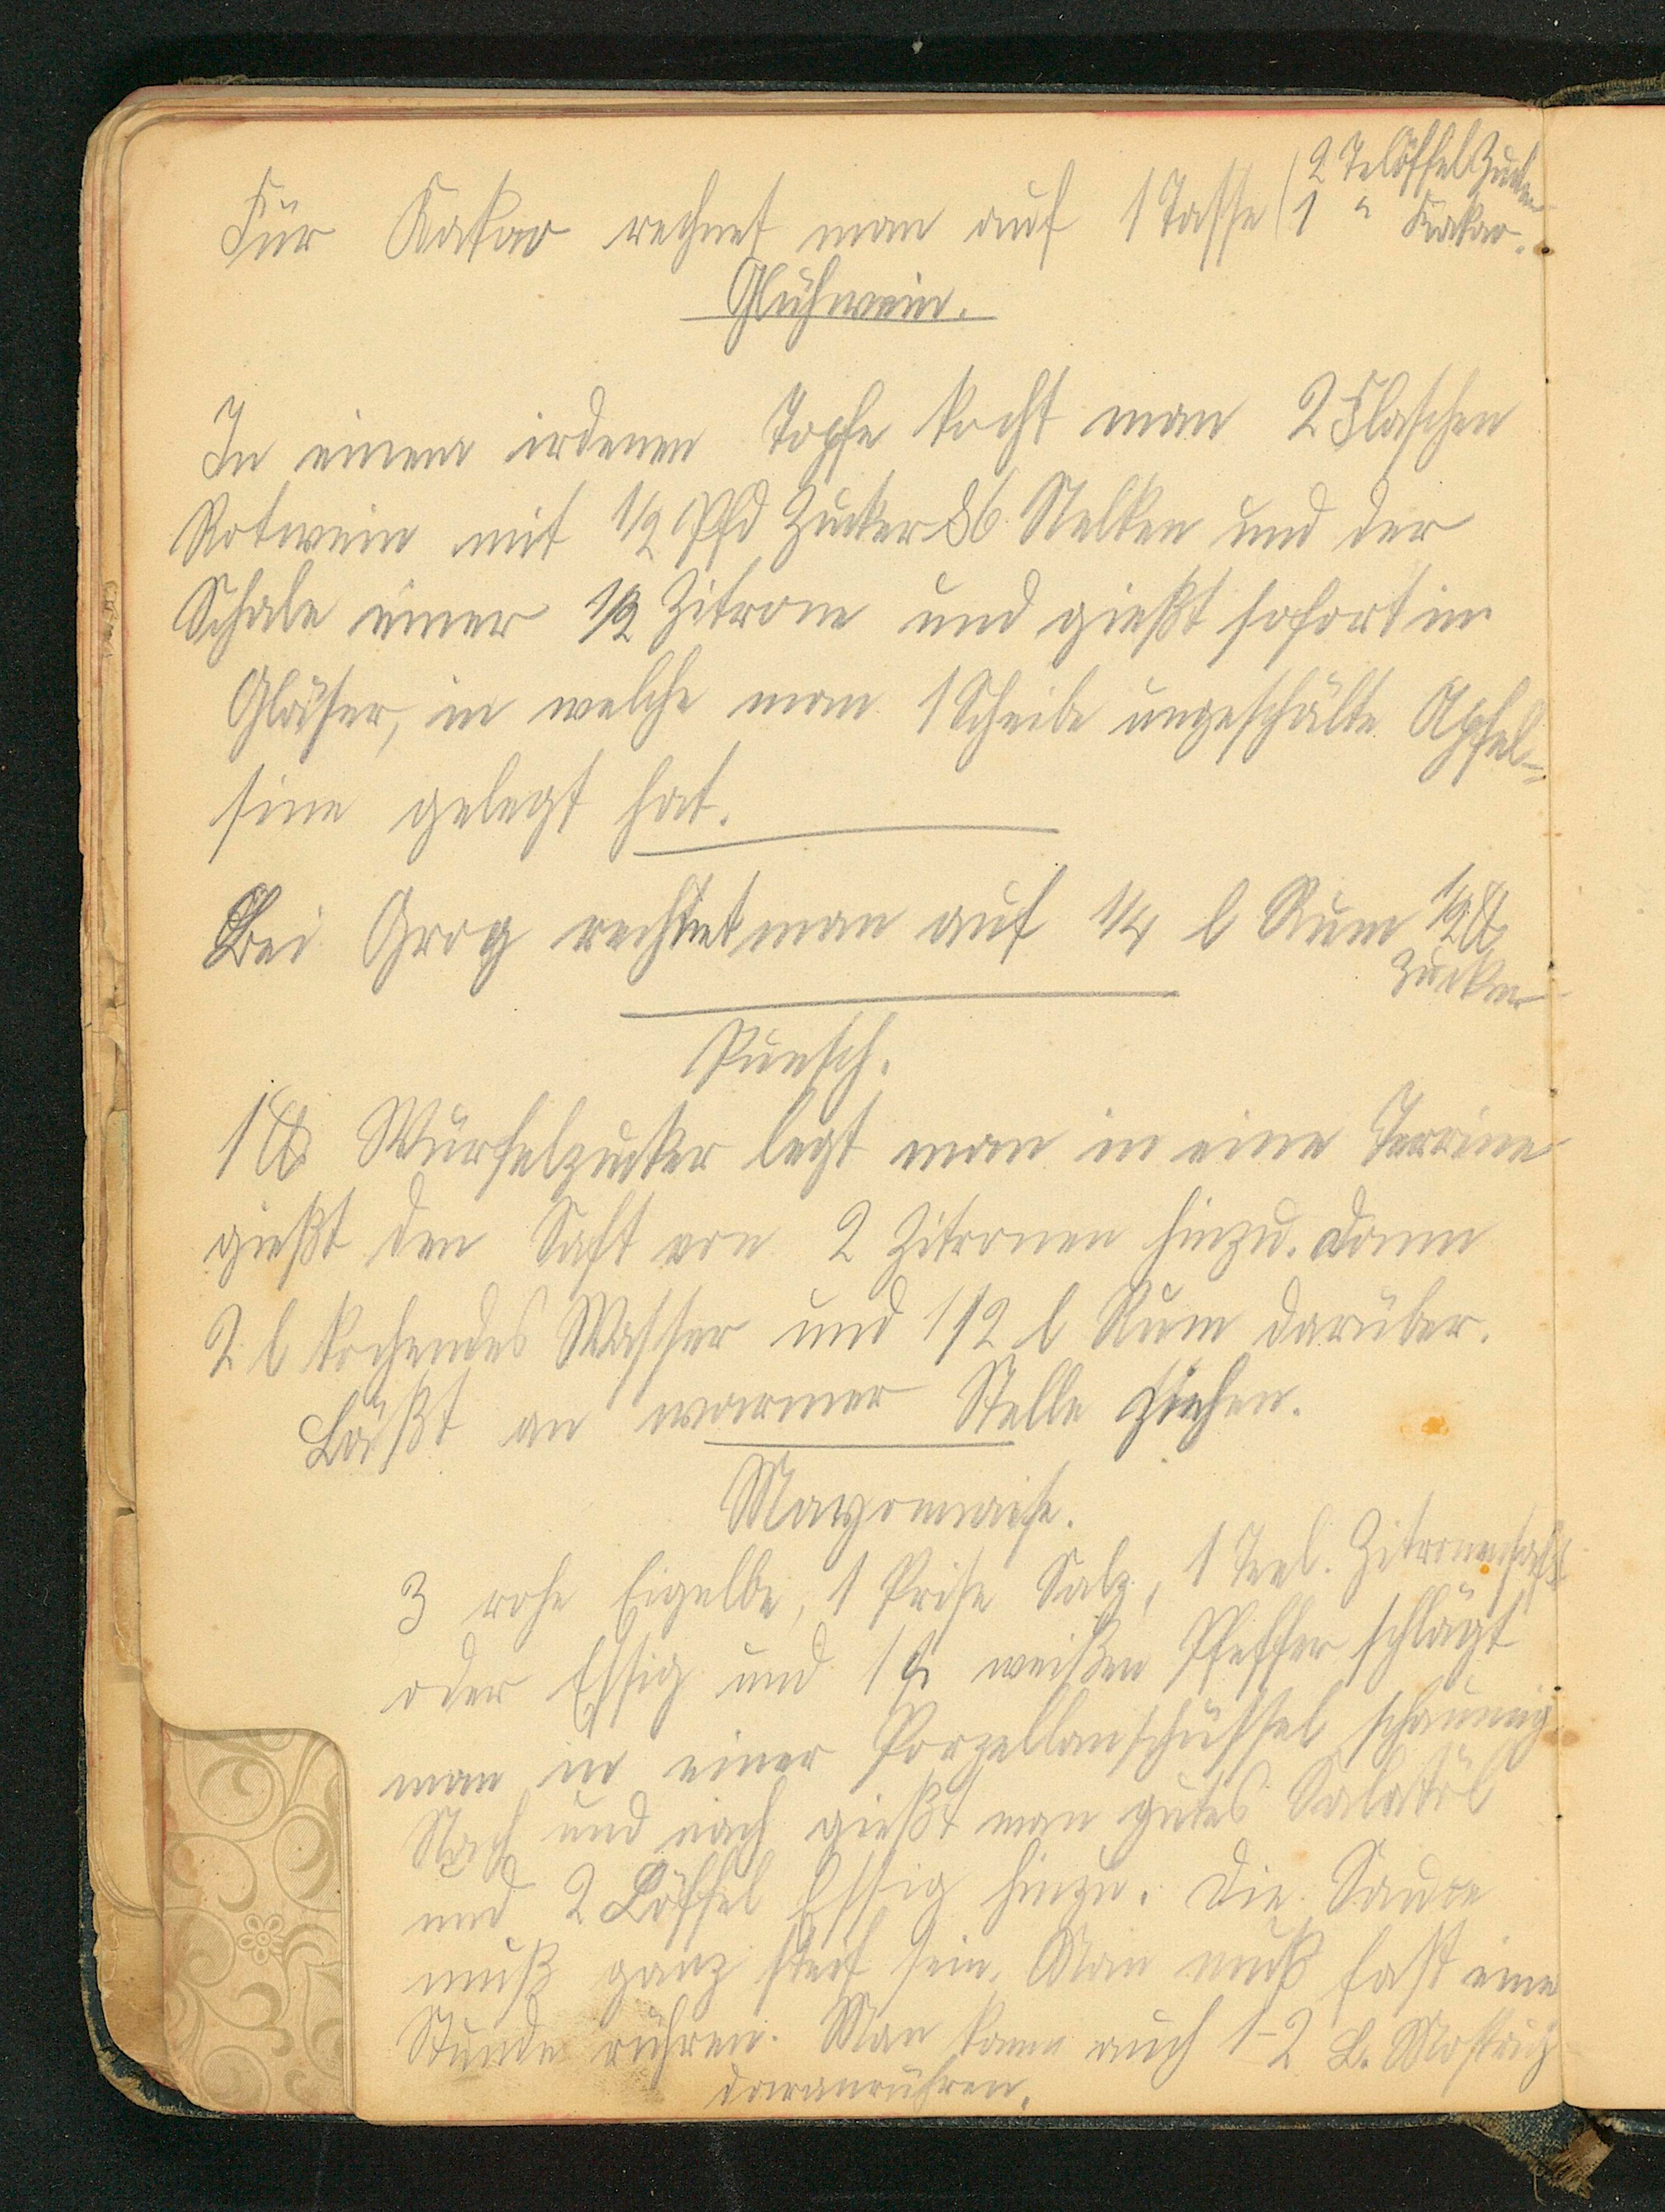 Für Kakao rechnet man auf 1 Tasse (2 Telöffel Zucker
1 " Kakao.
Glühwein.
In einem irdenen Topfe kocht man 2 Flaschen
Rotwein mit 1/2 Pfd Zucker 6 Nelken und der
Schale einer 1/2 Zitrone und gießt sofort in
Gläser, in welche man 1 Scheibe ungeschälte Apfel-
sine gelegt hat.
Bei Grog rechnet man auf 1/4 l Rum 1/2 ℔
Zucker
Punsch.
1 ℔ Würfelzucker legt man in eine Terrine
gießt den Saft von 2 Zitronen hinzu. Dann
2 l kochendes Wasser und 1/2 l Rum darüber.
Läßt an warmer Stelle ziehen.
Mayonnaise.
3 rohe Eigelbe, 1 Prise Salz, 1 Teel. Zitronensaft
oder Essig und 1 weißen Pfeffer schlägt
man in einer Porzellanschüssel schaumig.
Nach und nach gießt man gutes Salatöl
und 2 Löffel Essig hinzu. Die Sauce
muß ganz steif sein. Man muß fast eine
Stunde rühren. Man kann auch 1-2 L. Mostrich
daranrühren.